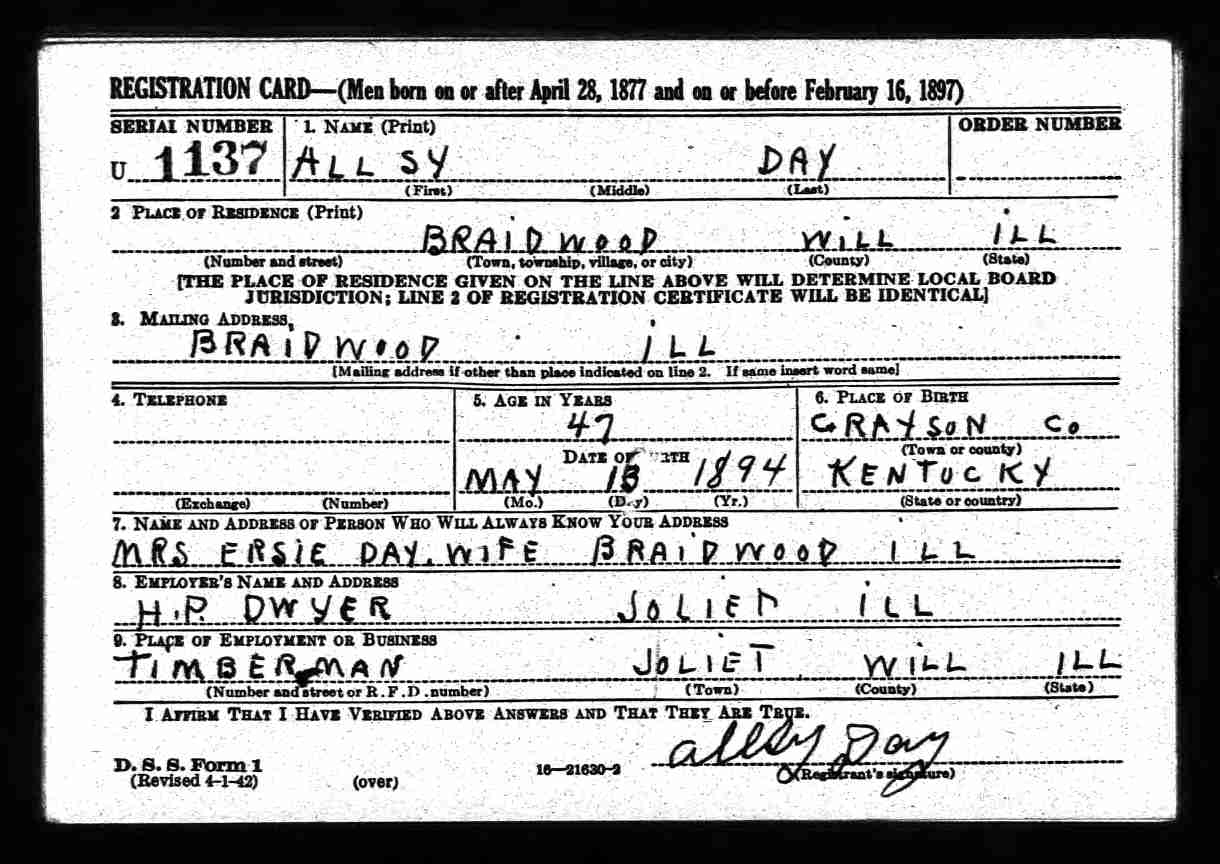 REGISTRATION CARD—(Men born on or after April 28, 1877 and on or before February 16, 1897)
SERIAL NUMBER 1. NAME (Print) ORDER NUMBER
U 1137 ALLSY DAY
(First) (Middle) (Last)
2 PLACE OF RESIDENCE (Print)
BRAIDWOOD WILL ILL
(Number and street) (Town, township, village, or city) (County) (State)
[THE PLACE OF RESIDENCE GIVEN ON THE LINE ABOVE WILL DETERMINE LOCAL BOARD
JURISDICTION; LINE 2 OF REGISTRATION CERTIFICATE WILL BE IDENTICAL]
3. MAILING ADDRESS
BRAIDWOOD ILL
[Mailing address if other than place indicated on line 2. If same insert word same]
4. TELEPHONE 5. AGE IN YEARS 6. PLACE OF BIRTH
47 GRAYSON CO
DATE OF BIRTH (Town or county)
MAY 13 1894 KENTUCKY
(Exchange) (Number) (Mo.) (Day) (Yr.) (State or country)
7. NAME AND ADDRESS OF PERSON WHO WILL ALWAYS KNOW YOUR ADDRESS
MRS ERSIE DAY. WIFE BRAIDWOOD ILL
8. EMPLOYER'S NAME AND ADDRESS
H.P. DWYER JOLIET ILL
9. PLACE OF EMPLOYMENT OR BUSINESS
TIMBERMAN JOLIET WILL ILL
(Number and street or R. F. D. number) (Town) (County) (State)
I AFFIRM THAT I HAVE VERIFIED ABOVE ANSWERS AND THAT THEY ARE TRUE.
Allsy Day
D. S. S. Form 1
(Revised 4-1-42) (over) 16—21630-2 (Registrant's signature)